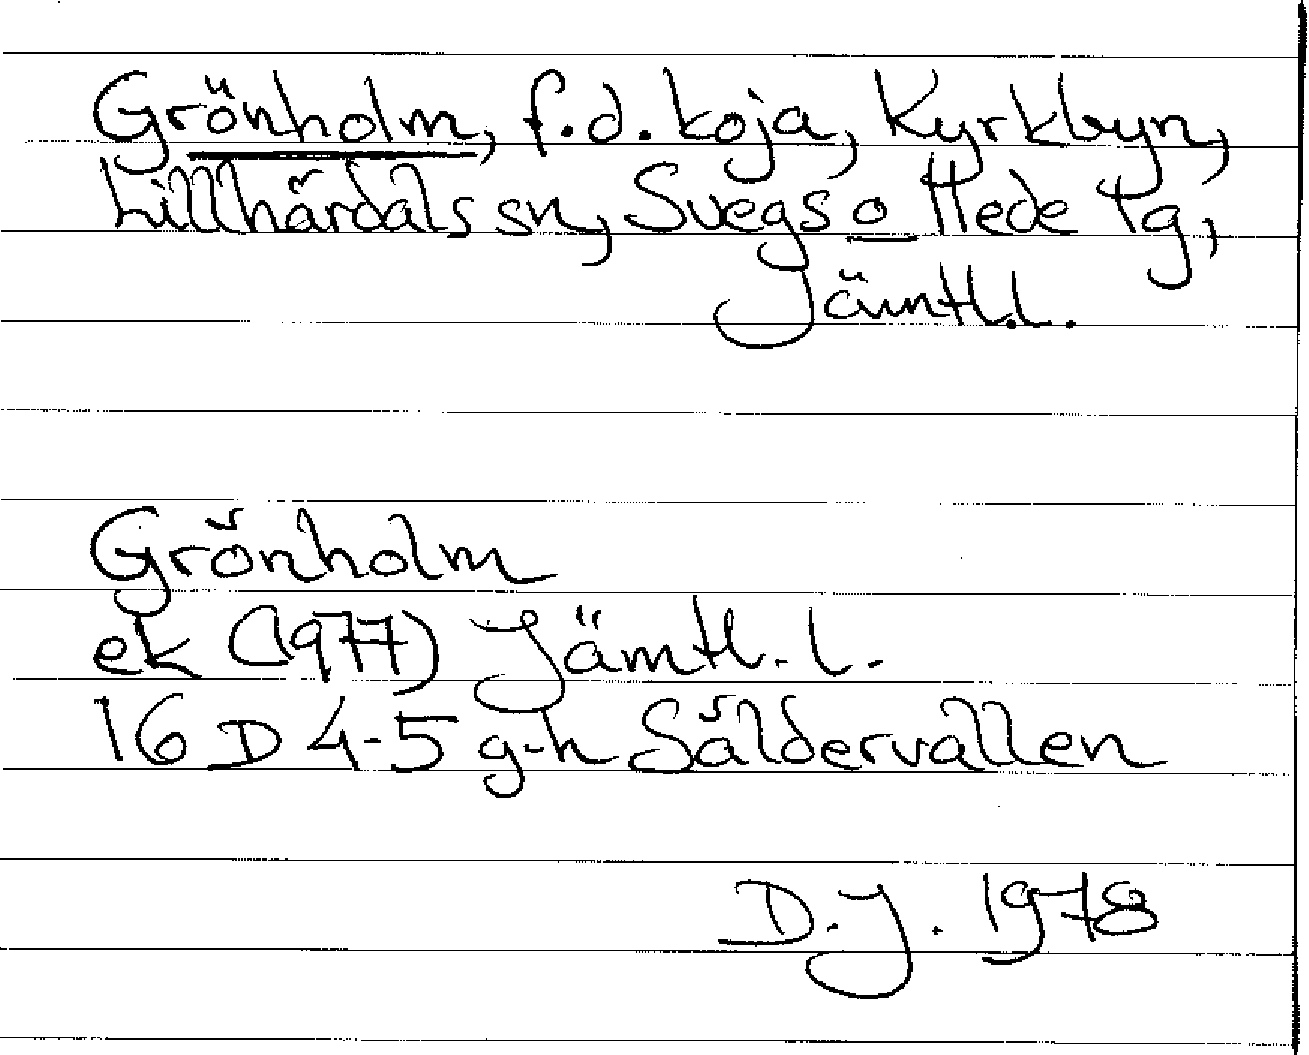 Grönholm, f.d. koja, Kyrkbyn,
Lillhärdals sn, Svegs o Hede tg,
Jämtl.l.
Grönholm
ek (1977) Jämtl. l.
16 D 4-5 g-h Säldervallen
D.J. 1978